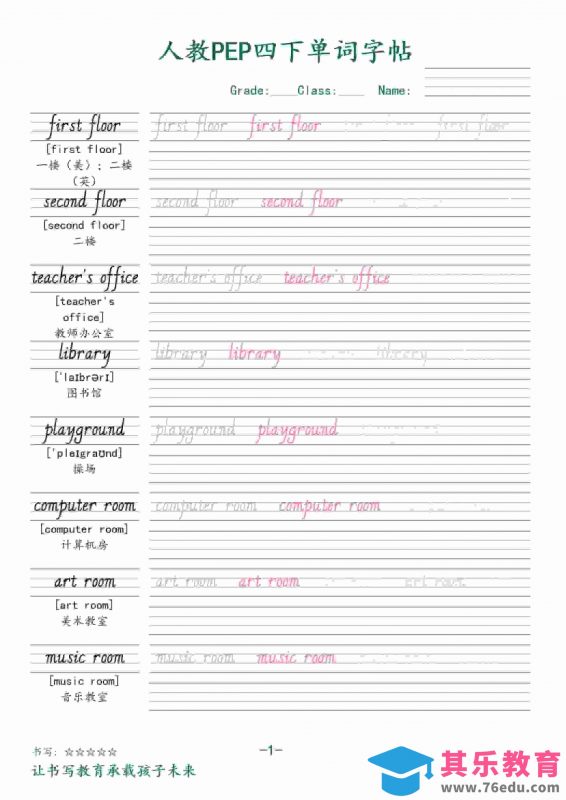 人教PEP四下单词字帖
Grade:____Class:____ Name:
first floor first floor first floor first floor
[first floor]
一楼（美）；二楼
（英）
second floor second floor second floor
[second floor]
二楼
teacher's office teacher's office teacher's office
[teacher's
office]
教师办公室
library library library library
['laɪbrərɪ]
图书馆
playground playground playground
['pleɪgraʊnd]
操场
computer room computer room computer room
[computer room]
计算机房
art room art room art room art room
[art room]
美术教室
music room music room music room
[music room]
音乐教室
书写：☆☆☆☆☆
-1-
让书写教育承载孩子未来
其乐教育
www.76edu.com